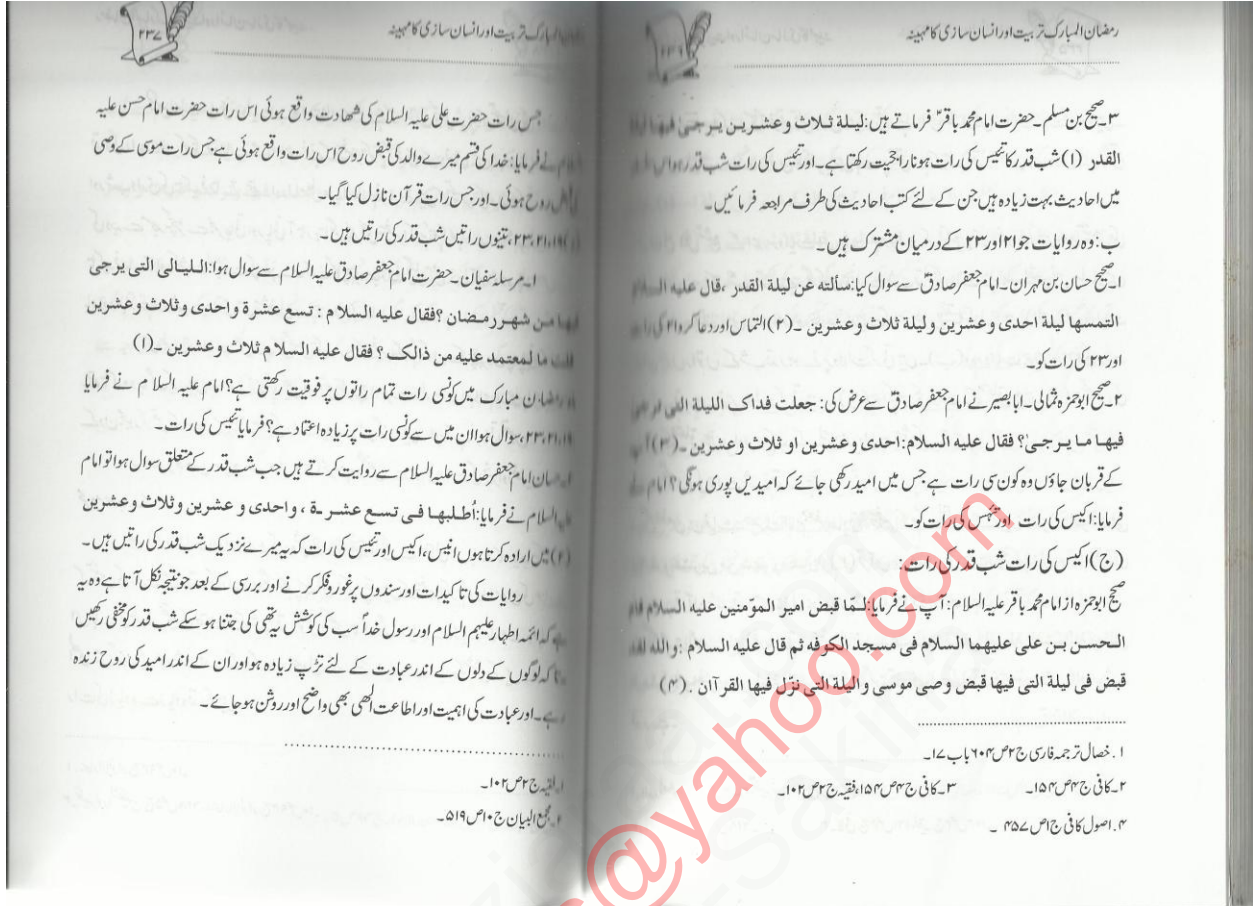 رمضان المبارک تربیت اور انسان سازی کا مہینہ
۳۔ صحیح بن مسلم۔ حضرت امام محمد باقرؑ فرماتے ہیں: لیلۃ ثلاث وعشرین یرجیٰ فیھا لیلۃ
القدر (۱) شب قدر کا تئیس کی رات ہونا راجحیت رکھتا ہے۔ اور تئیس کی رات شب قدر ہو اس
میں احادیث بہت زیادہ ہیں جن کے لئے کتب احادیث کی طرف مراجعہ فرمائیں۔
ب: وہ روایات جو ۲۱ اور ۲۳ کے درمیان مشترک ہیں۔
۱۔ صحیح حسان بن مہران۔ امام جعفر صادقؑ سے سوال کیا: سألتہ عن لیلۃ القدر ،قال علیہ السلام
التمسھا لیلۃ احدی وعشرین ولیلۃ ثلاث وعشرین ۔(۲) التماس اور دعا کرو ۲۱ کی رات
اور ۲۳ کی رات کو۔
۲۔ صحیح ابوحمزہ ثمالی۔ ابابصیر نے امام جعفر صادقؑ سے عرض کی: جعلت فداک اللیلۃ التی یرجی
فیھا ما یرجیٰ؟ فقال علیہ السلام: احدی وعشرین او ثلاث وعشرین ۔(۳) آپ
کے قربان جاؤں وہ کون سی رات ہے جس میں امید رکھی جائے کہ امیدیں پوری ہونگی؟ امام نے
فرمایا: اکیس کی رات اور تئیس کی رات کو۔
(ج) اکیس کی رات شب قدر کی رات:
صحیح ابوحمزہ از امام محمد باقر علیہ السلام: آپ نے فرمایا: لمّا قبض امیر المؤمنین علیہ السلام قام
الحسن بن علی علیھما السلام فی مسجد الکوفہ ثم قال علیہ السلام :واللہ لقد
قبض فی لیلۃ التی فیھا قبض وصی موسی والیلۃ التی نزّل فیھا القرآان .(۴)
۱. خصال ترجمہ فارسی ج۲ ص ۶۰۴ باب ۱۷۔
۲۔ کافی ج ۴ ص ۱۵۴۔ ۳۔ کافی ج ۴ ص ۱۵۴، فقیہ ج ۲ ص ۱۰۲۔
۴. اصول کافی ج ۱ ص ۴۵۷ ۔
المبارک تربیت اور انسان سازی کا مہینہ
۲۳۷
جس رات حضرت علی علیہ السلام کی شھادت واقع ہوئی اس رات حضرت امام حسن علیہ
السلام نے فرمایا: خدا کی قسم میرے والد کی قبض روح اس رات واقع ہوئی ہے جس رات موسی کے وصی
کی قبض روح ہوئی۔ اور جس رات قرآن نازل کیا گیا۔
۱۹،۲۱،۲۳، تینوں راتیں شب قدر کی راتیں ہیں۔
۱۔ مرسلہ سفیان۔ حضرت امام جعفر صادق علیہ السلام سے سوال ہوا: اللیالی التی یرجی
فیھا من شھر رمضان ؟فقال علیہ السلام : تسع عشرۃ واحدی وثلاث وعشرین
قلت ما لمعتمد علیہ من ذالک ؟ فقال علیہ السلام ثلاث وعشرین ۔(۱)
رمضان مبارک میں کونسی رات تمام راتوں پر فوقیت رکھتی ہے؟ امام علیہ السلام نے فرمایا
۱۹،۲۱،۲۳، سوال ہوا ان میں سے کونسی رات پر زیادہ اعتماد ہے؟ فرمایا تئیس کی رات۔
۲۔ حسان امام جعفر صادق علیہ السلام سے روایت کرتے ہیں جب شب قدر کے متعلق سوال ہوا تو امام
علیہ السلام نے فرمایا: اُطلبھا فی تسع عشرۃ ، واحدی و عشرین وثلاث وعشرین
(۲) میں ارادہ کرتا ہوں انیس، اکیس اور تئیس کی رات کہ یہ میرے نزدیک شب قدر کی راتیں ہیں۔
روایات کی تاکیدات اور سندوں پر غور و فکر کرنے اور بررسی کے بعد جو نتیجہ نکل آتا ہے وہ یہ
ہے کہ ائمہ اطہار علیہم السلام اور رسول خداؐ سب کی کوشش یہ تھی کی جتنا ہو سکے شب قدر کو مخفی رکھیں
تاکہ لوگوں کے دلوں کے اندر عبادت کے لئے تڑپ زیادہ ہو اور ان کے اندر امید کی روح زندہ
رہے۔ اور عبادت کی اہمیت اور اطاعت الٰھی بھی واضح اور روشن ہو جائے۔
۱۔ فقیہ ج ۲ ص ۱۰۲۔
۲۔ مجمع البیان ج ۱۰ ص ۵۱۹۔
@yahoo.com